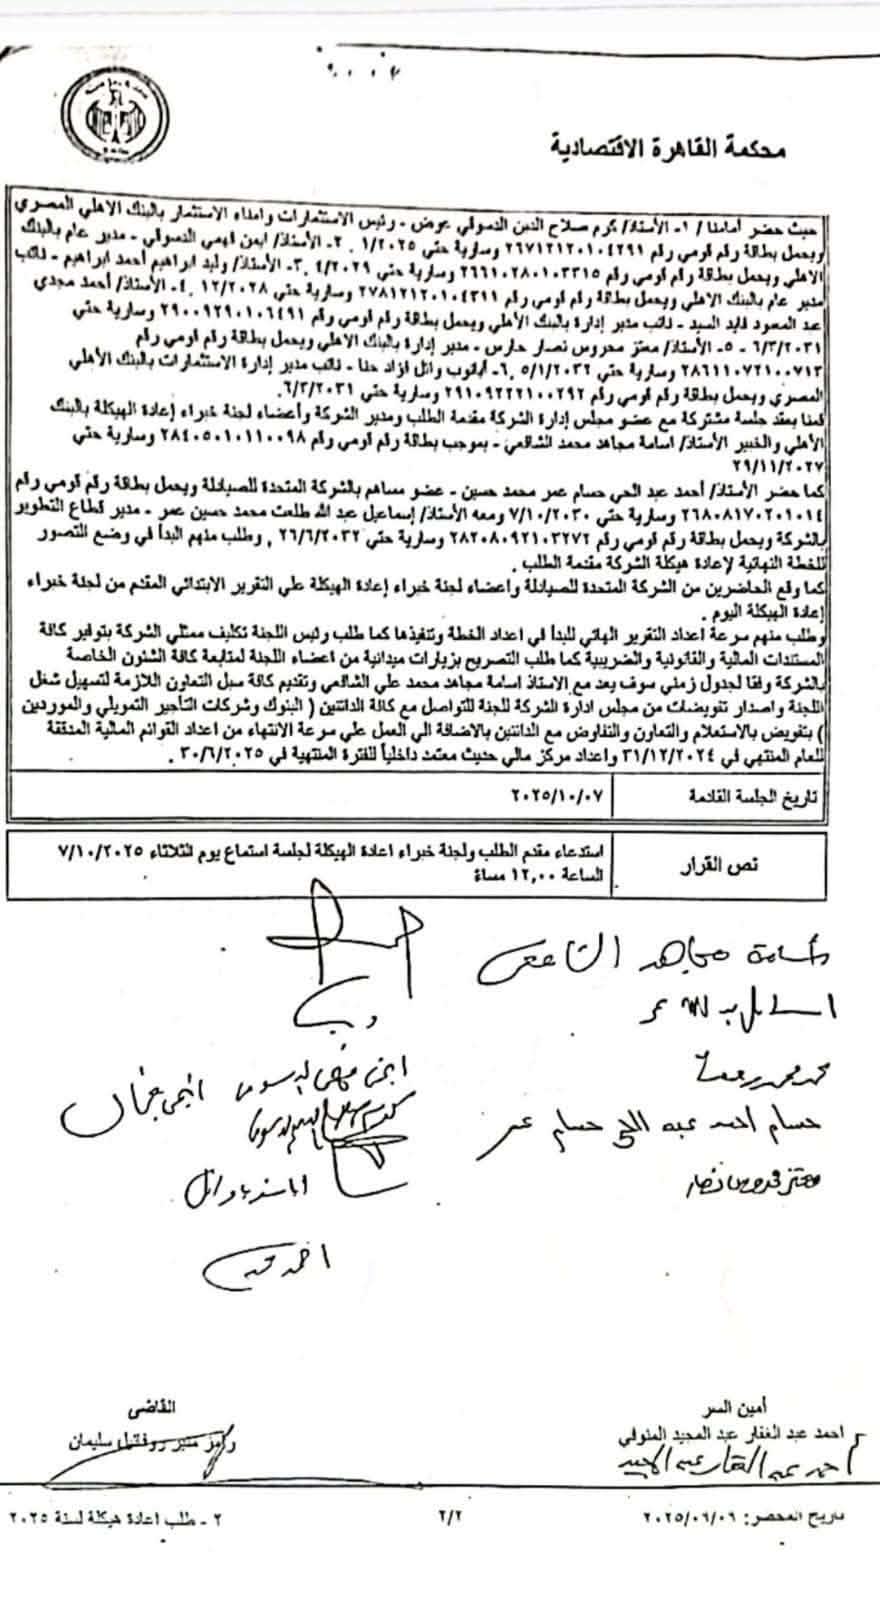 محكمة القاهرة الاقتصادية
حيث حضر أمامنا / ١- الأستاذ/ كرم صلاح الدين الدسوقي عوض - رئيس الاستثمارات وامناء الاستثمار بالبنك الاهلي المصري
ويحمل بطاقة رقم قومي رقم ٢٦٧١٢١٢٠١٠٤٢٩١ وسارية حتي ١/٢٠٢٥ . ٢- الأستاذ/ ايمن فهمي الدسوقي - مدير عام بالبنك
الاهلي ويحمل بطاقة رقم قومي رقم ٢٦٦١٠٢٨٠١٠٣٣١٥ وسارية حتي ٤/٢٠٢٩ .٣- الأستاذ/ وليد ابراهيم أحمد ابراهيم - نائب
مدير عام بالبنك الاهلي ويحمل بطاقة رقم قومي رقم ٢٧٨١٢١٢٠١٠٤٣١١ وسارية حتي ١٢/٢٠٢٨ .٤- الأستاذ/ أحمد مجدي
عبد المعبود فايد السيد - نائب مدير إدارة بالبنك الأهلي ويحمل بطاقة رقم قومي رقم ٢٩٠٠٩٢٩٠١٠٦٤٩١ وسارية حتي
٦/٣/٢٠٣١ - ٥- الأستاذ/ معتز محروس نصار حارس - مدير إدارة بالبنك الاهلي ويحمل بطاقة رقم قومي رقم
٢٨٦١١٠٧٢١٠٠٧١٣ وسارية حتي ٥/١/٢٠٣٢ .٦- أبانوب وائل ازاد حنا - نائب مدير إدارة الاستثمارات بالبنك الأهلي
المصري ويحمل بطاقة رقم قومي رقم ٢٩١٠٩٢٢٢١٠٠٢٩٢ وسارية حتي ٦/٣/٢٠٣١.
قمنا بعقد جلسة مشتركة مع عضو مجلس إدارة الشركة مقدمة الطلب ومدير الشركة وأعضاء لجنة خبراء إعادة الهيكلة بالبنك
الأهلي والخبير الأستاذ/ اسامة مجاهد محمد الشافعي - بموجب بطاقة رقم قومي رقم ٢٨٤٠٥٠١٠١١٠٠٩٨ وسارية حتي
٢٩/١١/٢٠٢٧
كما حضر الأستاذ/ أحمد عبد الحي حسام عمر محمد حسين - عضو مساهم بالشركة المتحدة للصيادلة ويحمل بطاقة رقم قومي رقم
٢٦٨٠٨١٧٠٢٠١٠١٤ وسارية حتي ٧/١٠/٢٠٣٠ ومعه الأستاذ/ إسماعيل عبد الله طلعت محمد حسين عمر - مدير قطاع التطوير
بالشركة ويحمل بطاقة رقم قومي رقم ٢٨٢٠٨٠٩٢١٠٣٢٧٢ وسارية حتي ٢٦/٦/٢٠٣٢ , وطلب منهم البدأ في وضع التصور
للخطة النهائية لإعادة هيكلة الشركة مقدمة الطلب .
كما وقع الحاضرين من الشركة المتحدة للصيادلة واعضاء لجنة خبراء إعادة الهيكلة علي التقرير الابتدائي المقدم من لجنة خبراء
إعادة الهيكلة اليوم .
وطلب منهم سرعة اعداد التقرير الهاتي للبدأ في اعداد الخطة وتنفيذها كما طلب رئيس اللجنة تكليف ممثلي الشركة بتوفير كافة
المستندات المالية والقانونية والضريبية كما طلب التصريح بزيارات ميدانية من اعضاء اللجنة لمتابعة كافة الشئون الخاصة
بالشركة وفقا لجدول زمني سوف يعد مع الاستاذ اسامة مجاهد محمد علي الشافعي وتقديم كافة سبل التعاون اللازمة لتسهيل شغل
اللجنة واصدار تفويضات من مجلس ادارة الشركة للجنة للتواصل مع كافة الدائنين ( البنوك وشركات التأجير التمويلي والموردين
) بتفويض بالاستعلام والتعاون والتفاوض مع الدائنين بالاضافة الي العمل علي سرعة الانتهاء من اعداد القوائم المالية المدققة
للعام المنتهي في ٣١/١٢/٢٠٢٤ واعداد مركز مالي حديث معتمد داخلياً للفترة المنتهية في ٣٠/٦/٢٠٢٥ .
تاريخ الجلسة القادمة ٢٠٢٥/١٠/٠٧
نص القرار استدعاء مقدم الطلب ولجنة خبراء اعادة الهيكلة لجلسة استماع يوم الثلاثاء ٧/١٠/٢٠٢٥
الساعة ١٢,٠٠ مساءً
أسامة مجاهد الشافعي
اسماعيل عبد الله عمر
ايمن فهمي الدسوقي
حسام احمد عبد الحي حسام عمر
معتز محروس نصار
احمد مجدي
أمين السر
احمد عبد الغفار عبد المجيد المتولي
احمد عبد الغفار عبد المجيد
القاضى
رامز منير روفائيل سليمان
تاريخ المحضر: ٢٠٢٥/٠٦/٠٦
٢/٢
٢ - طلب اعادة هيكلة لسنة ٢٠٢٥